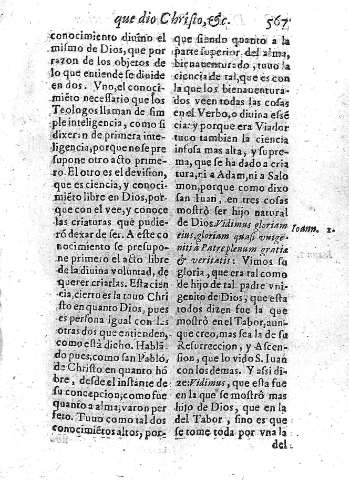 que dio Christo, &c. 567
conocimiento diuino el
mismo de Dios, que por
razon de los objetos de
lo que entiende se diuide
en dos. Vno, el conoci-
miẽto necessario que los
Teologos llaman de sim
ple inteligencia, como si
dixerẽ de primera inteli-
gencia, porque no se pre
supone otro acto prime-
ro. El otro es el de vision,
que es ciencia, y conoci-
miẽto libre en Dios, por-
que con el vee, y conoce
las criaturas que pudie-
rõ dexar de ser. A este co
nocimiento se presupo-
ne primero el acto libre
de la diuina voluntad, de
querer criarlas. Esta cien
cia, cierto es la tuuo Chri
sto en quanto Dios, pues
es persona igual con las
otras dos que entienden,
como està dicho. Hablã
do pues, como san Pablo,
de Christo en quanto hõ
bre, desde el instante de
su concepcion; como fue
quanto a alma, varon per
feto. Tuuo como tal dos
conocimiẽtos altos, por-
que siendo quanto a la
parte superior del alma,
bienauenturado, tuuo la
ciencia de tal, que es con
la que los bienauentura-
dos veen todas las cosas
en el Verbo, o diuina essẽ
cia: y porque era Viador
tuuo tambien la ciencia
infusa mas alta, y supre-
ma, que se ha dado a cria
tura, ni a Adam, ni a Salo
mon, porque como dixo
san Iuan, en tres cosas
mostrò ser hijo natural
de Dios. Vidimus gloriam
eius, gloriam quasi vnige-
niti à Patre plenum gratia
& veritatis. Vimos su
gloria, que era tal como
de hijo de tal padre vni-
genito de Dios, que esta
todos dizen fue la que
mostrò en el Tabor, aun-
que creo, mas sea la de su
Resurreccion, y Ascen-
sion, que lo vido S. Iuan
con los demas. Y assi di-
ze: Vidimus, que esta fue
en la que se mostrò mas
hijo de Dios, que en la
del Tabor, sino es que
se tome toda por vna la
del
Ioann. 1.